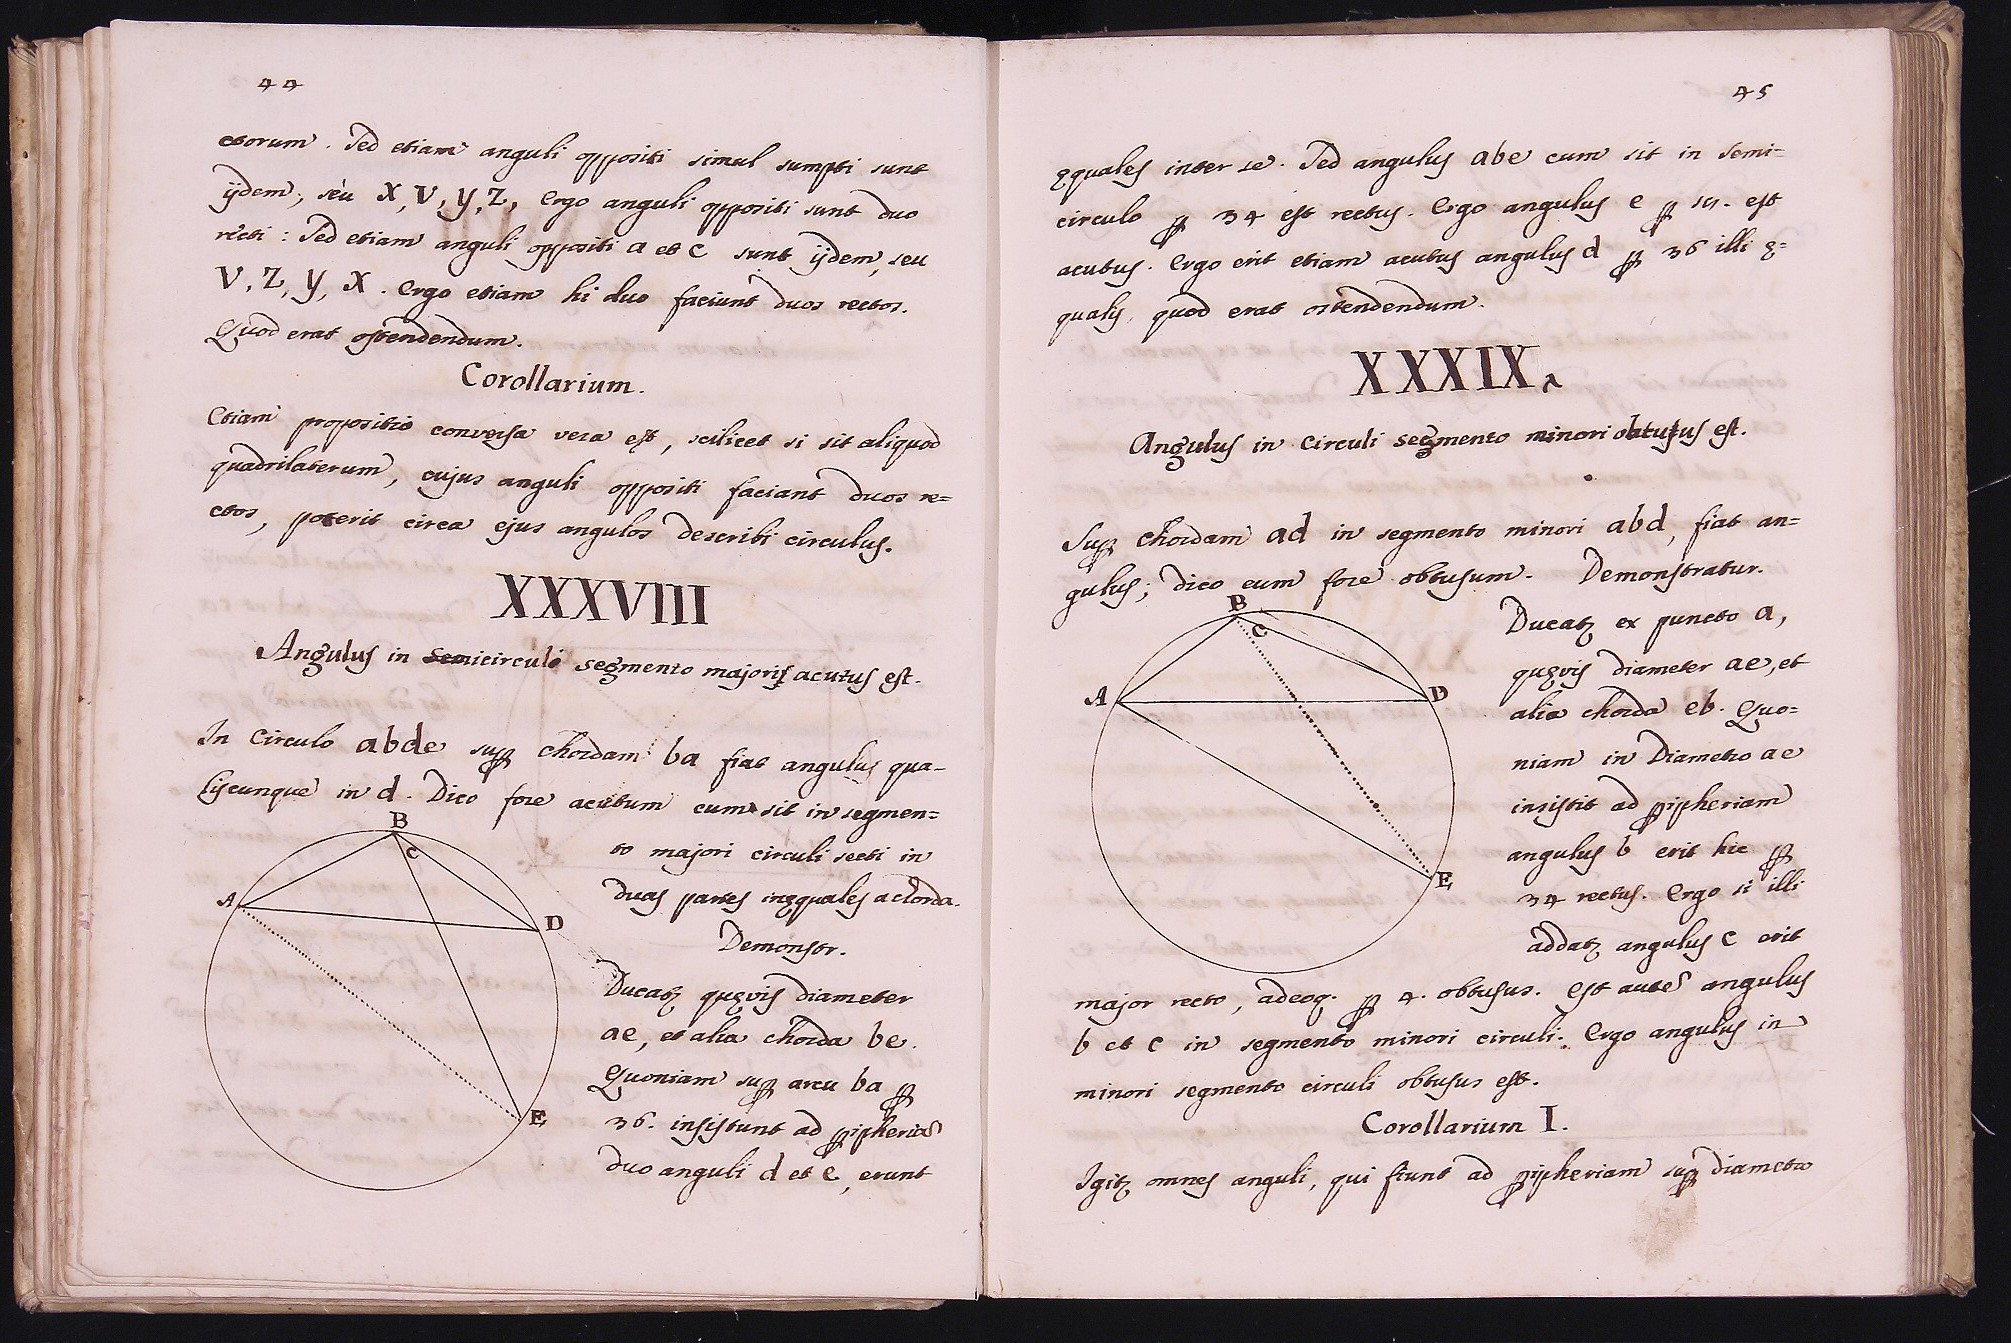 44
ctorum. Sed etiam anguli oppositi simul sumpti sunt
ijdem, seu X, V, y, Z, Ergo anguli oppositi sunt duo
recti: Sed etiam anguli oppositi a et c sunt ijdem, seu
V, Z, y, X. Ergo etiam hi duo faciunt duos rectos.
Quod erat ostendendum.
Corollarium.
Etiam propositio conversa vera est, scilicet si sit aliquod
quadrilaterum, cujus anguli oppositi faciant duos re=
ctos, poterit circa ejus angulos describi circulus.
XXXVIII
Angulus in semicirculi segmento majori acutus est.
In Circulo abde sup chordam ba fiat angulus qua-
liscunque in d. Dico fore acutum cum sit in segmen=
to majori circuli secti in
duas partes inęquales a chorda.
Demonstr.
Ducatz quęvis diameter
ae, et alia chorda be.
Quoniam sup arcu ba p
36. insistunt ad pipheriā
duo anguli d et e, erunt
B
C
A
D
E
45
ęquales inter se. Sed angulus abe cum sit in semi=
circulo p 34 est rectus. Ergo angulus e p est
acutus. Ergo erit etiam acutus angulus d p 36 illi ę=
qualis, quod erat ostendendum.
XXXIX
Angulus in circuli segmento minori obtusus est.
Sup chordam ad in segmento minori abd, fiat an=
gulus; dico eum fore obtusum. Demonstratur.
Ducatz ex puncto a,
quęvis diameter ae, et
alia chorda eb. Quo=
niam in Diametro ae
insistit ad pipheriam
angulus b erit hic p
34 rectus. Ergo si illi
addatz angulus c erit
major recto, adeoq. p 4. obtusus. Est autē angulus
b et c in segmento minori circuli. Ergo angulus in
minori segmento circuli obtusus est.
Corollarium I.
Igitz omnes anguli, qui fiunt ad pipheriam sup diametro
B
C
A
D
E